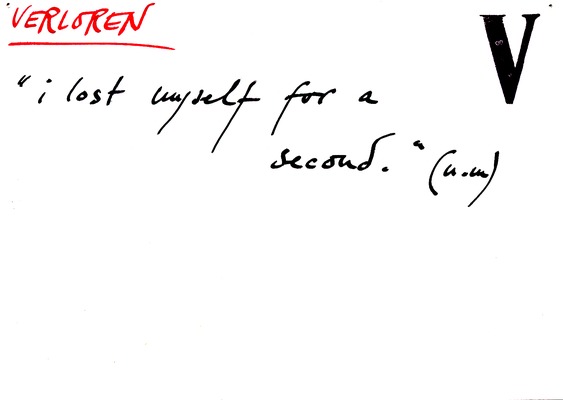 VERLOREN
V
"i lost myself for a
second." (n.m)